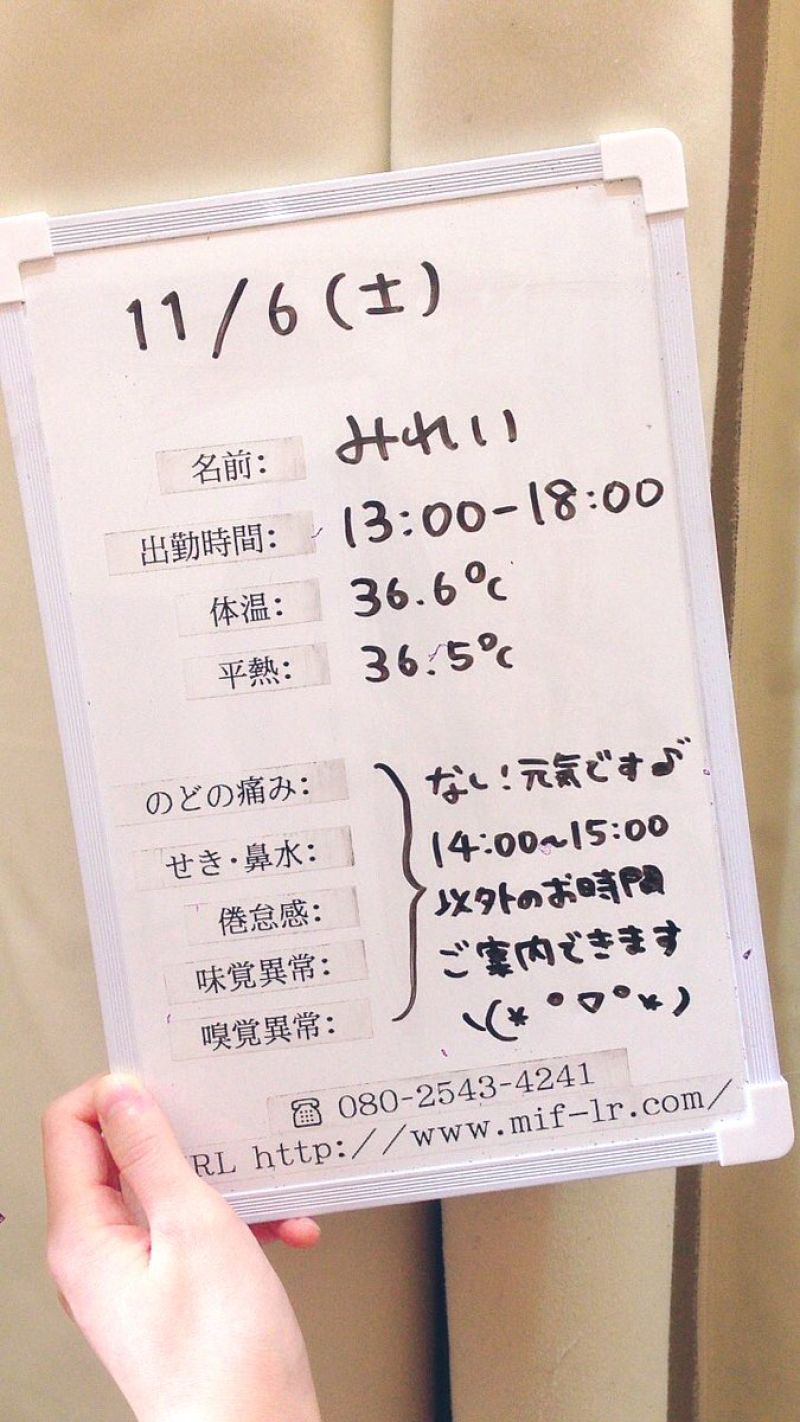 11/6(土)
名前: みれい
出勤時間: 13:00-18:00
体温: 36.6℃
平熱: 36.5℃
のどの痛み:
せき・鼻水:
倦怠感:
味覚異常:
嗅覚異常:
なし!元気です♪
14:00~15:00
以外のお時間
ご案内できます
ヽ(*°▽°*)
☎ 080-2543-4241
RL http://www.mif-lr.com/